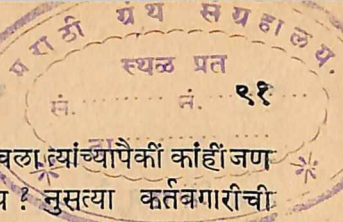 मराठी ग्रंथ संग्रहालय.
स्थळ प्रत
सं. ............ नं. ११
वला, त्यांच्यापैकीं कांहीं जण
? नुसत्या कर्तबगारीची